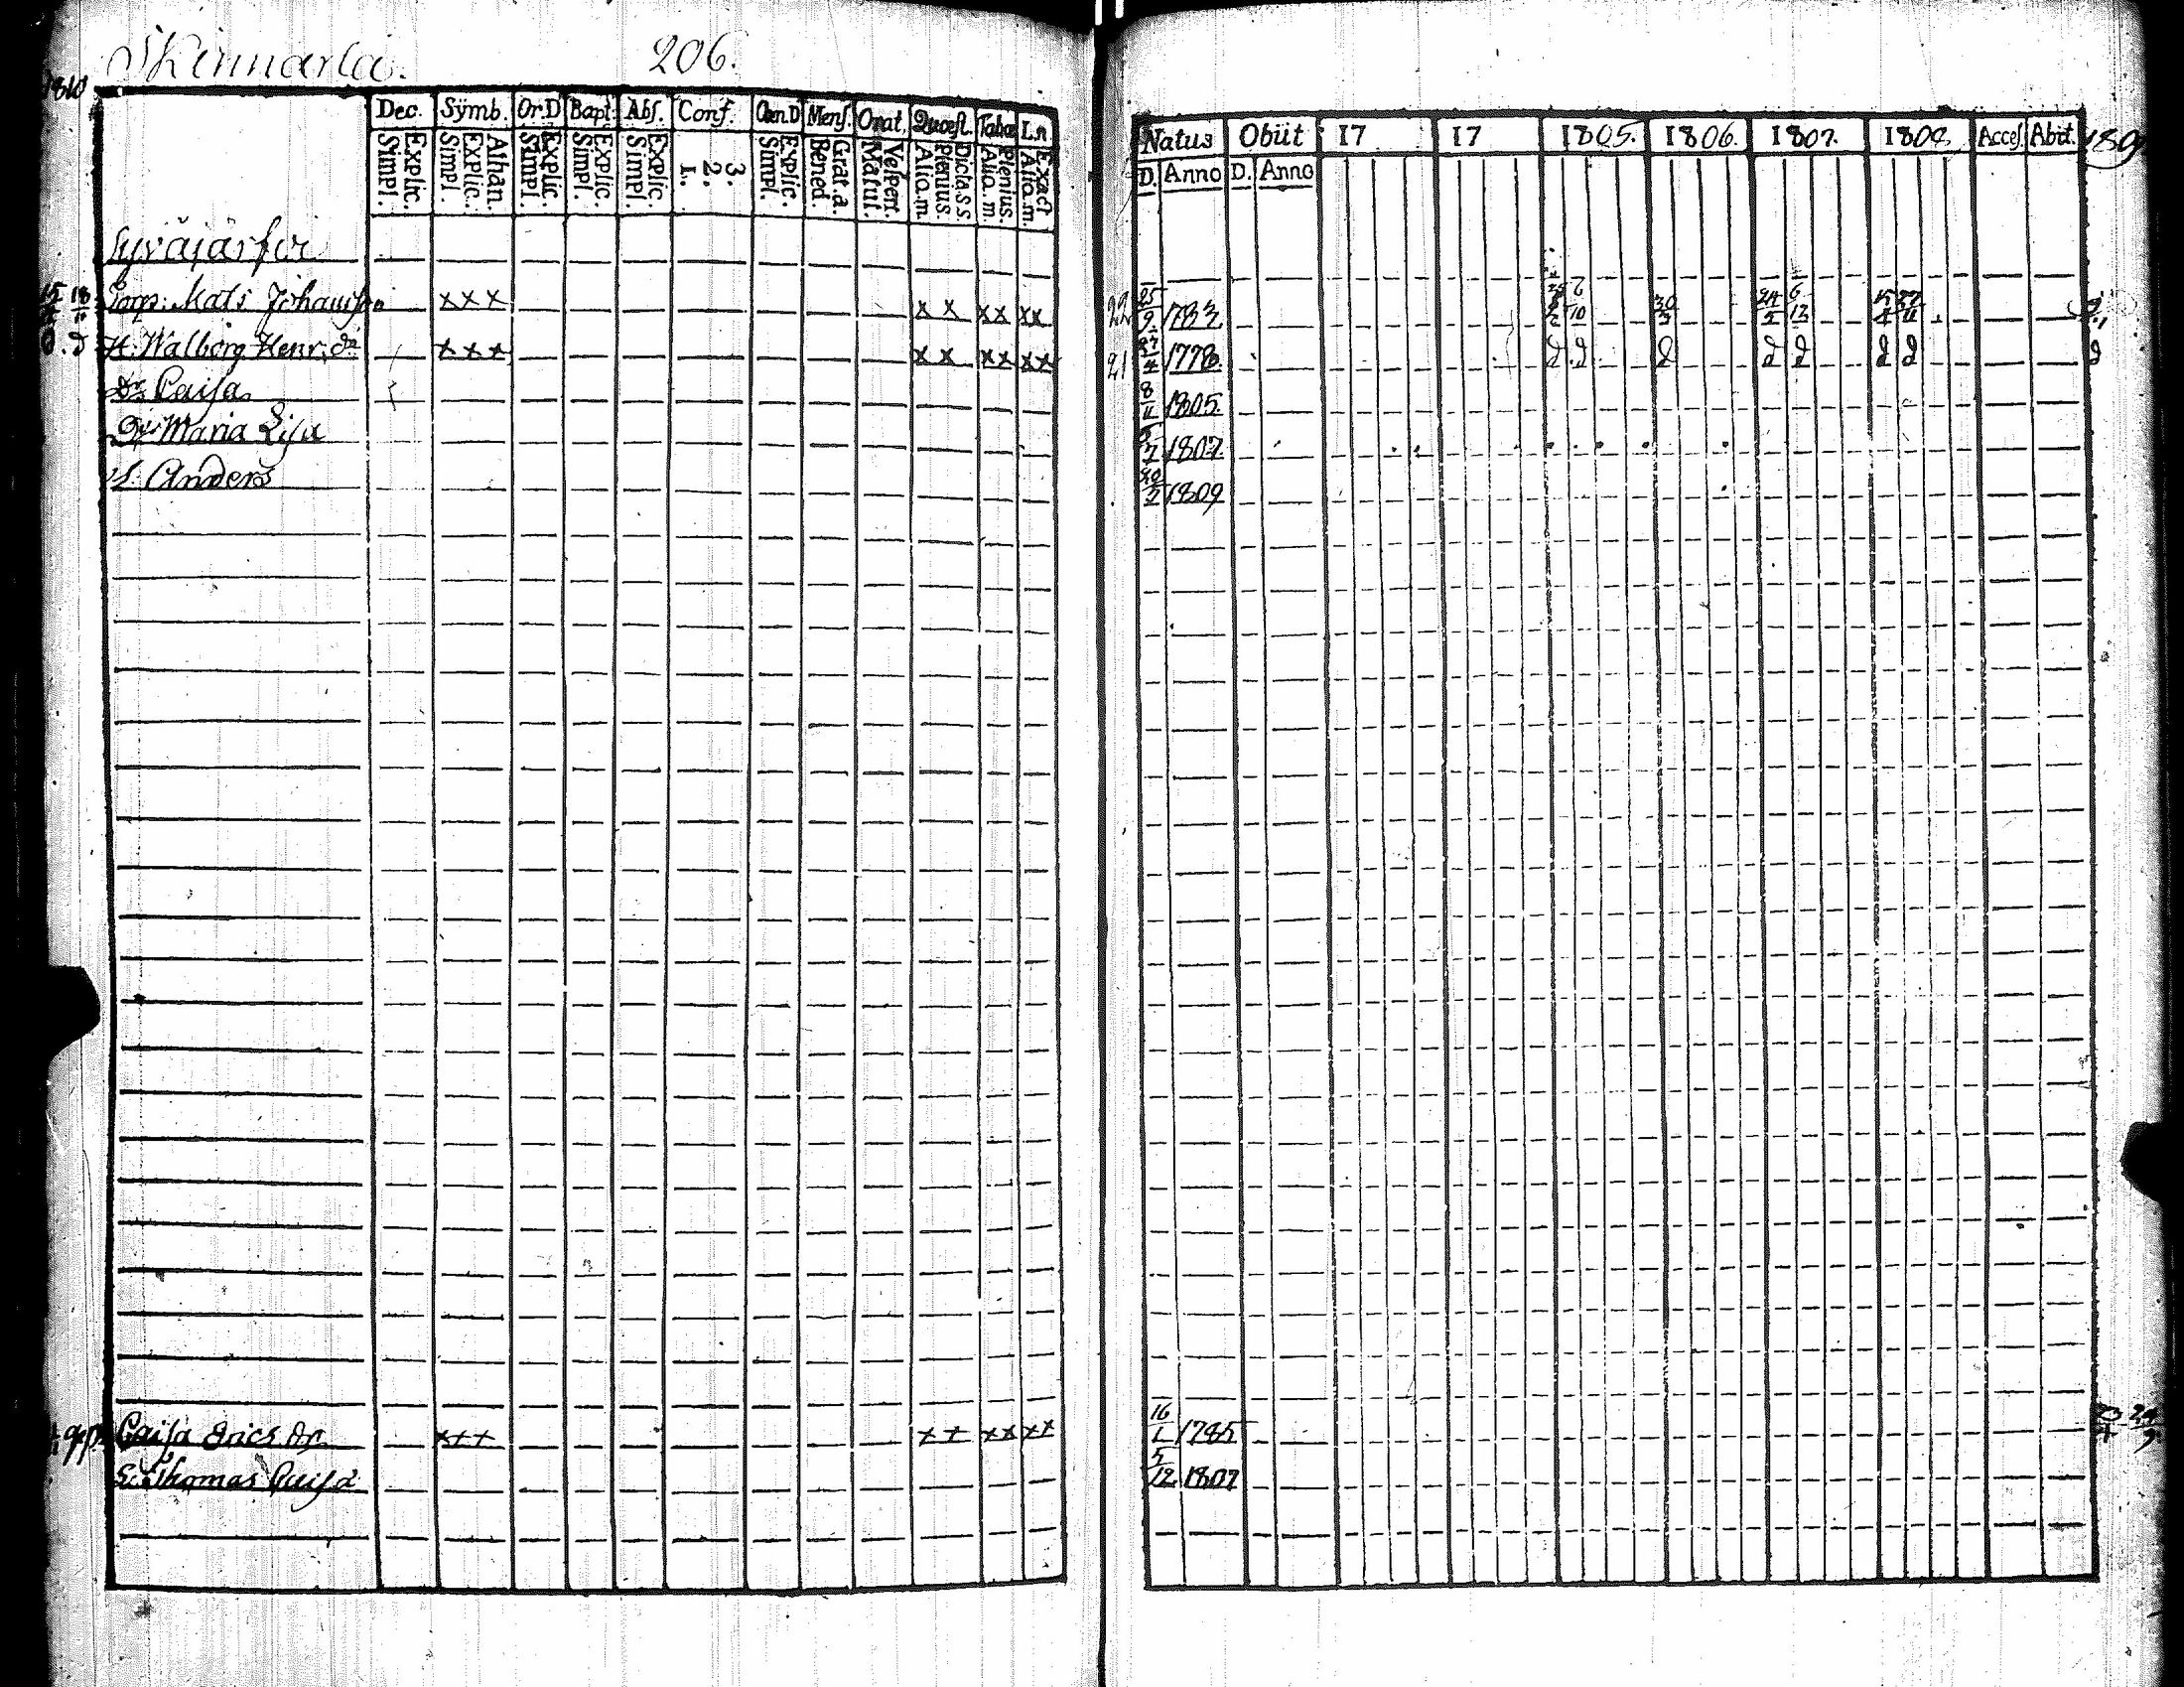 Skinnarla. 206.
1810
Dec. Symb. Or.D Bapt. Abs. Conf. Cœn.D Mens. Orat. Quæst. Tabæ L.n.
Explic. Simpl. Athan. Explic. Simpl. Explic. Simpl. Explic. Simpl. Explic. Simpl. 3. 2. 1. Explic. Simpl. Grat. a. Bened. Vespert. Matut. Dicta s.s. Plenius. Alio. m. Plenius. Alio. m. Exact Alio. m.
Natus Obiit 17 17 1805. 1806. 1807. 1808 Acces. Abit. 1809
D. Anno D. Anno
Syväjärfvi
Mats Johansson xxx xx xx xx 22 25/9 1783. 6/10 30/3 24/5 6/12
H. Walborg Henr. dr xxx xx xx xx 21 1778.
Dr Caisa 8/11 1805.
Dr Maria Lisa 1807.
S. Anders 1809
Caisa Erics dr xxx xx xx xx 16/1 1785
Thomas 5/12 1807